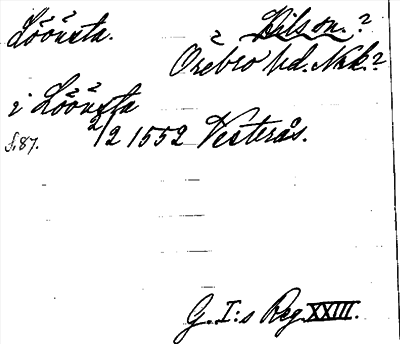 Lőőnsta. Kilson.?
? Örebro hd. Nkk.?
i Lőőnsta
f. 87. 2/2 1552 Vesterås.
G. I:s Reg. XXIII.